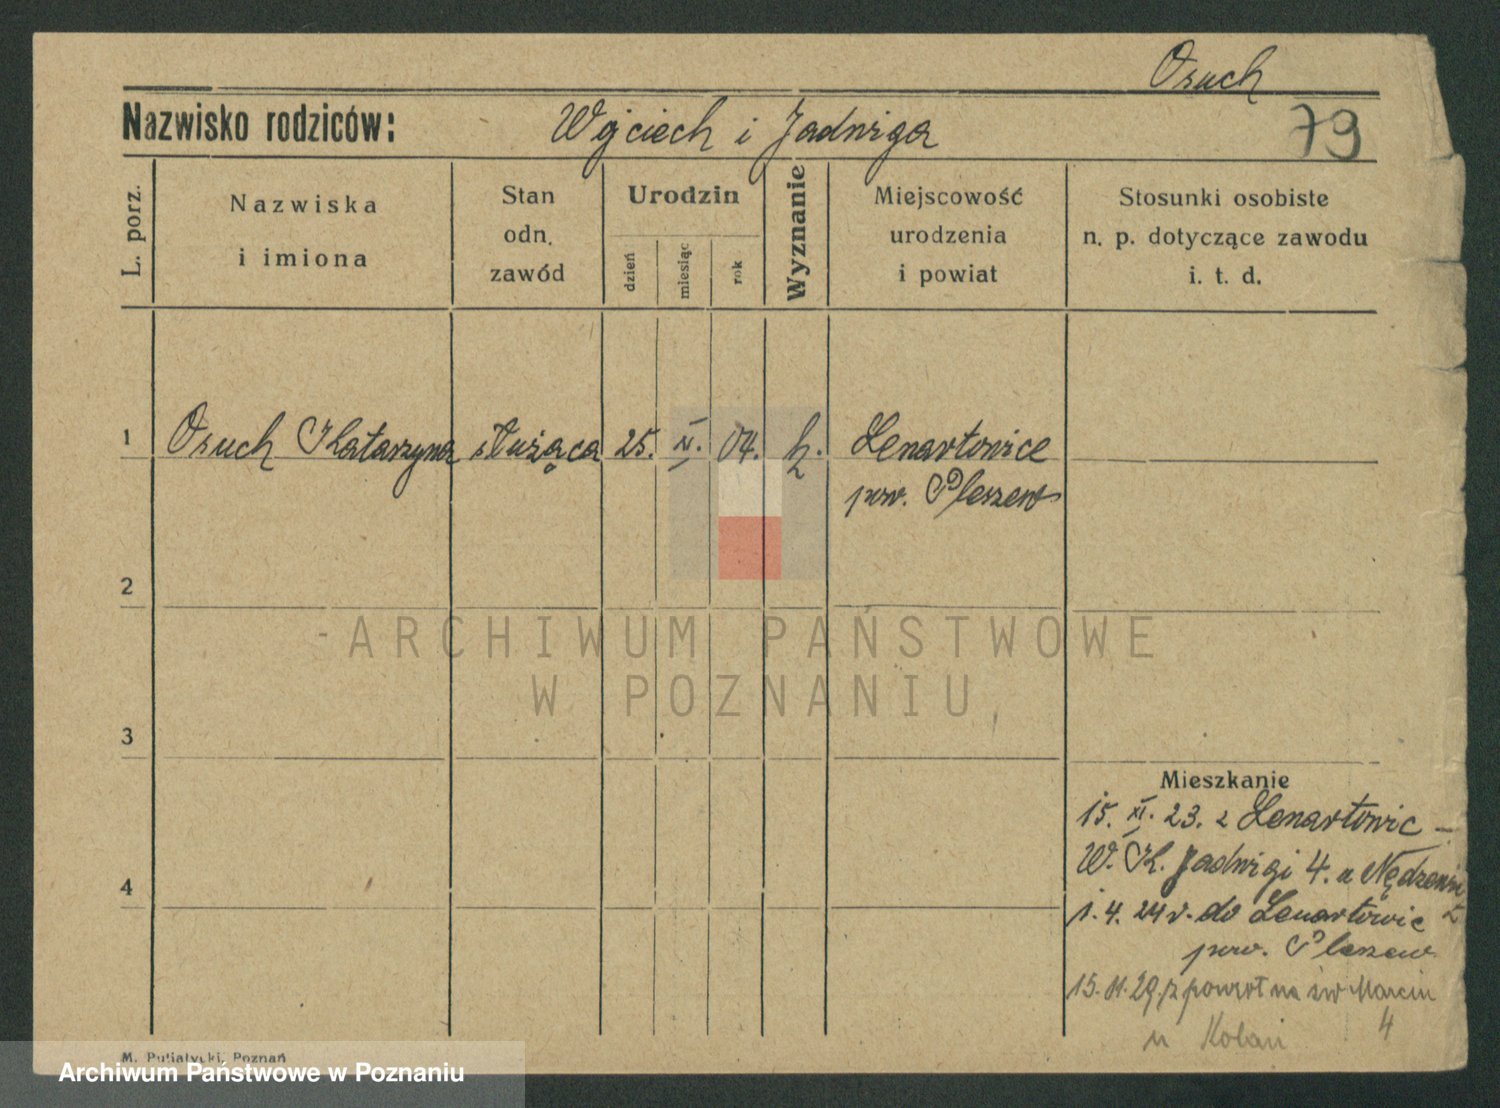 Osuch
Nazwisko rodziców: Wojciech i Jadwiga
79
L. porz.
Nazwiska
i imiona
Stan
odn.
zawód
Urodzin
dzień
miesiąc
rok
Wyznanie
Miejscowość
urodzenia
i powiat
Stosunki osobiste
n. p. dotyczące zawodu
i. t. d.
1 Osuch Katarzyna służąca 25. XI. 04. k. Lenartowice
pow. Pleszew
2
ARCHIWUM PAŃSTWOWE
W POZNANIU
3
Mieszkanie
15. XI. 23. z Lenartowic -
W. K. Jadwigi 4. u
4
1. 4. 24 r. do Lenartowic
pow. Pleszew
15.11.29 powrót na św Marcin
4
u
M. Putiatycki, Poznań
Archiwum Państwowe w Poznaniu